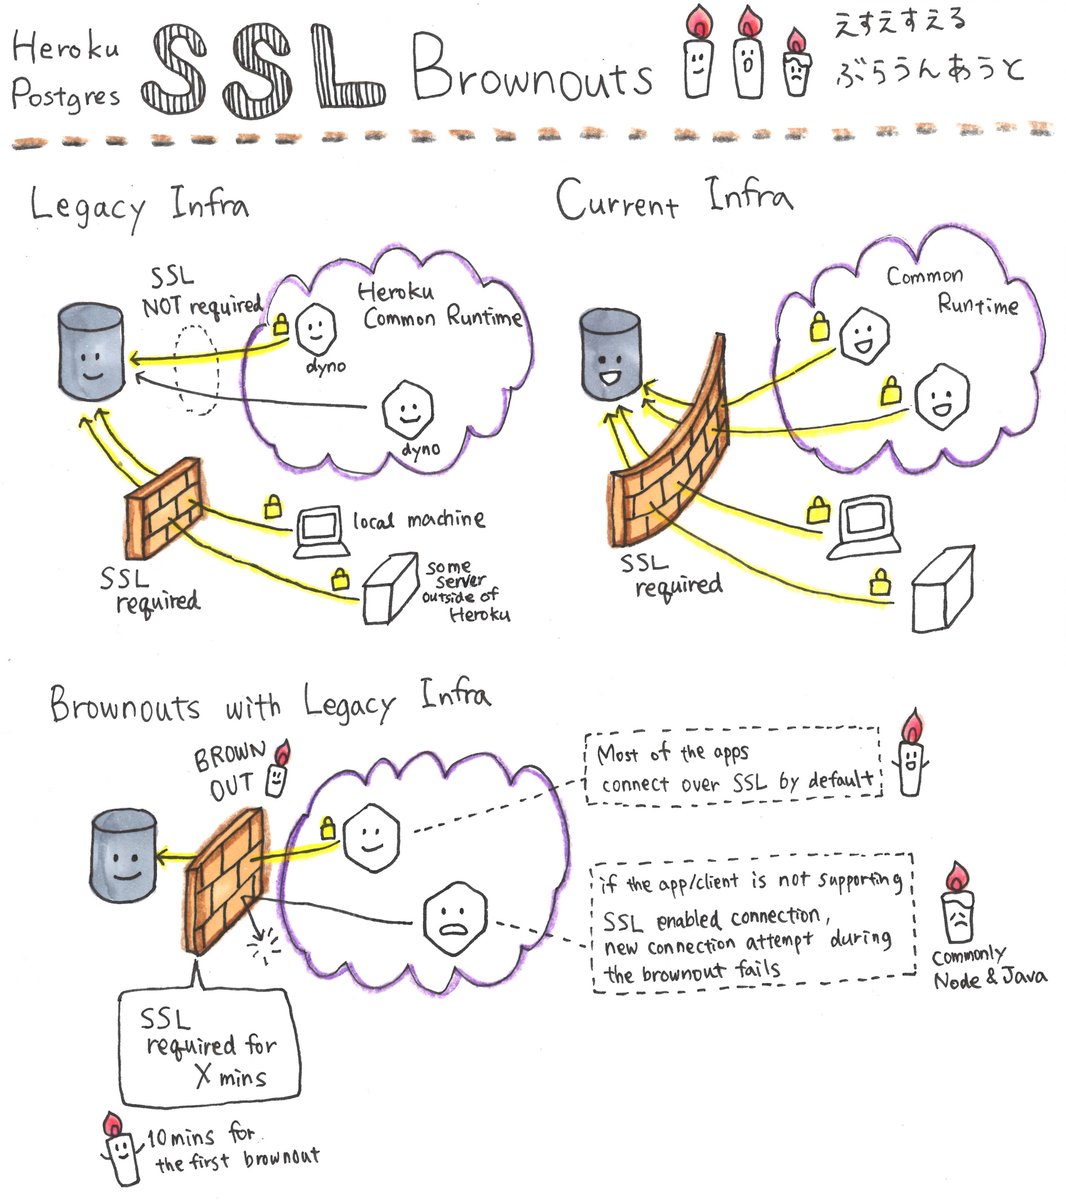 Heroku
Postgres
SSL
Brownouts
えすえすえる
ぶらうんあうと
Legacy Infra
SSL
NOT required
Heroku
Common Runtime
dyno
dyno
local machine
some
server
outside of
Heroku
SSL
required
Current Infra
Common
Runtime
SSL
required
Brownouts with Legacy Infra
BROWN
OUT
Most of the apps
connect over SSL by default
if the app/client is not supporting
SSL enabled connection,
new connection attempt during
the brownout fails
commonly
Node & Java
SSL
required for
X mins
10mins for
the first brownout